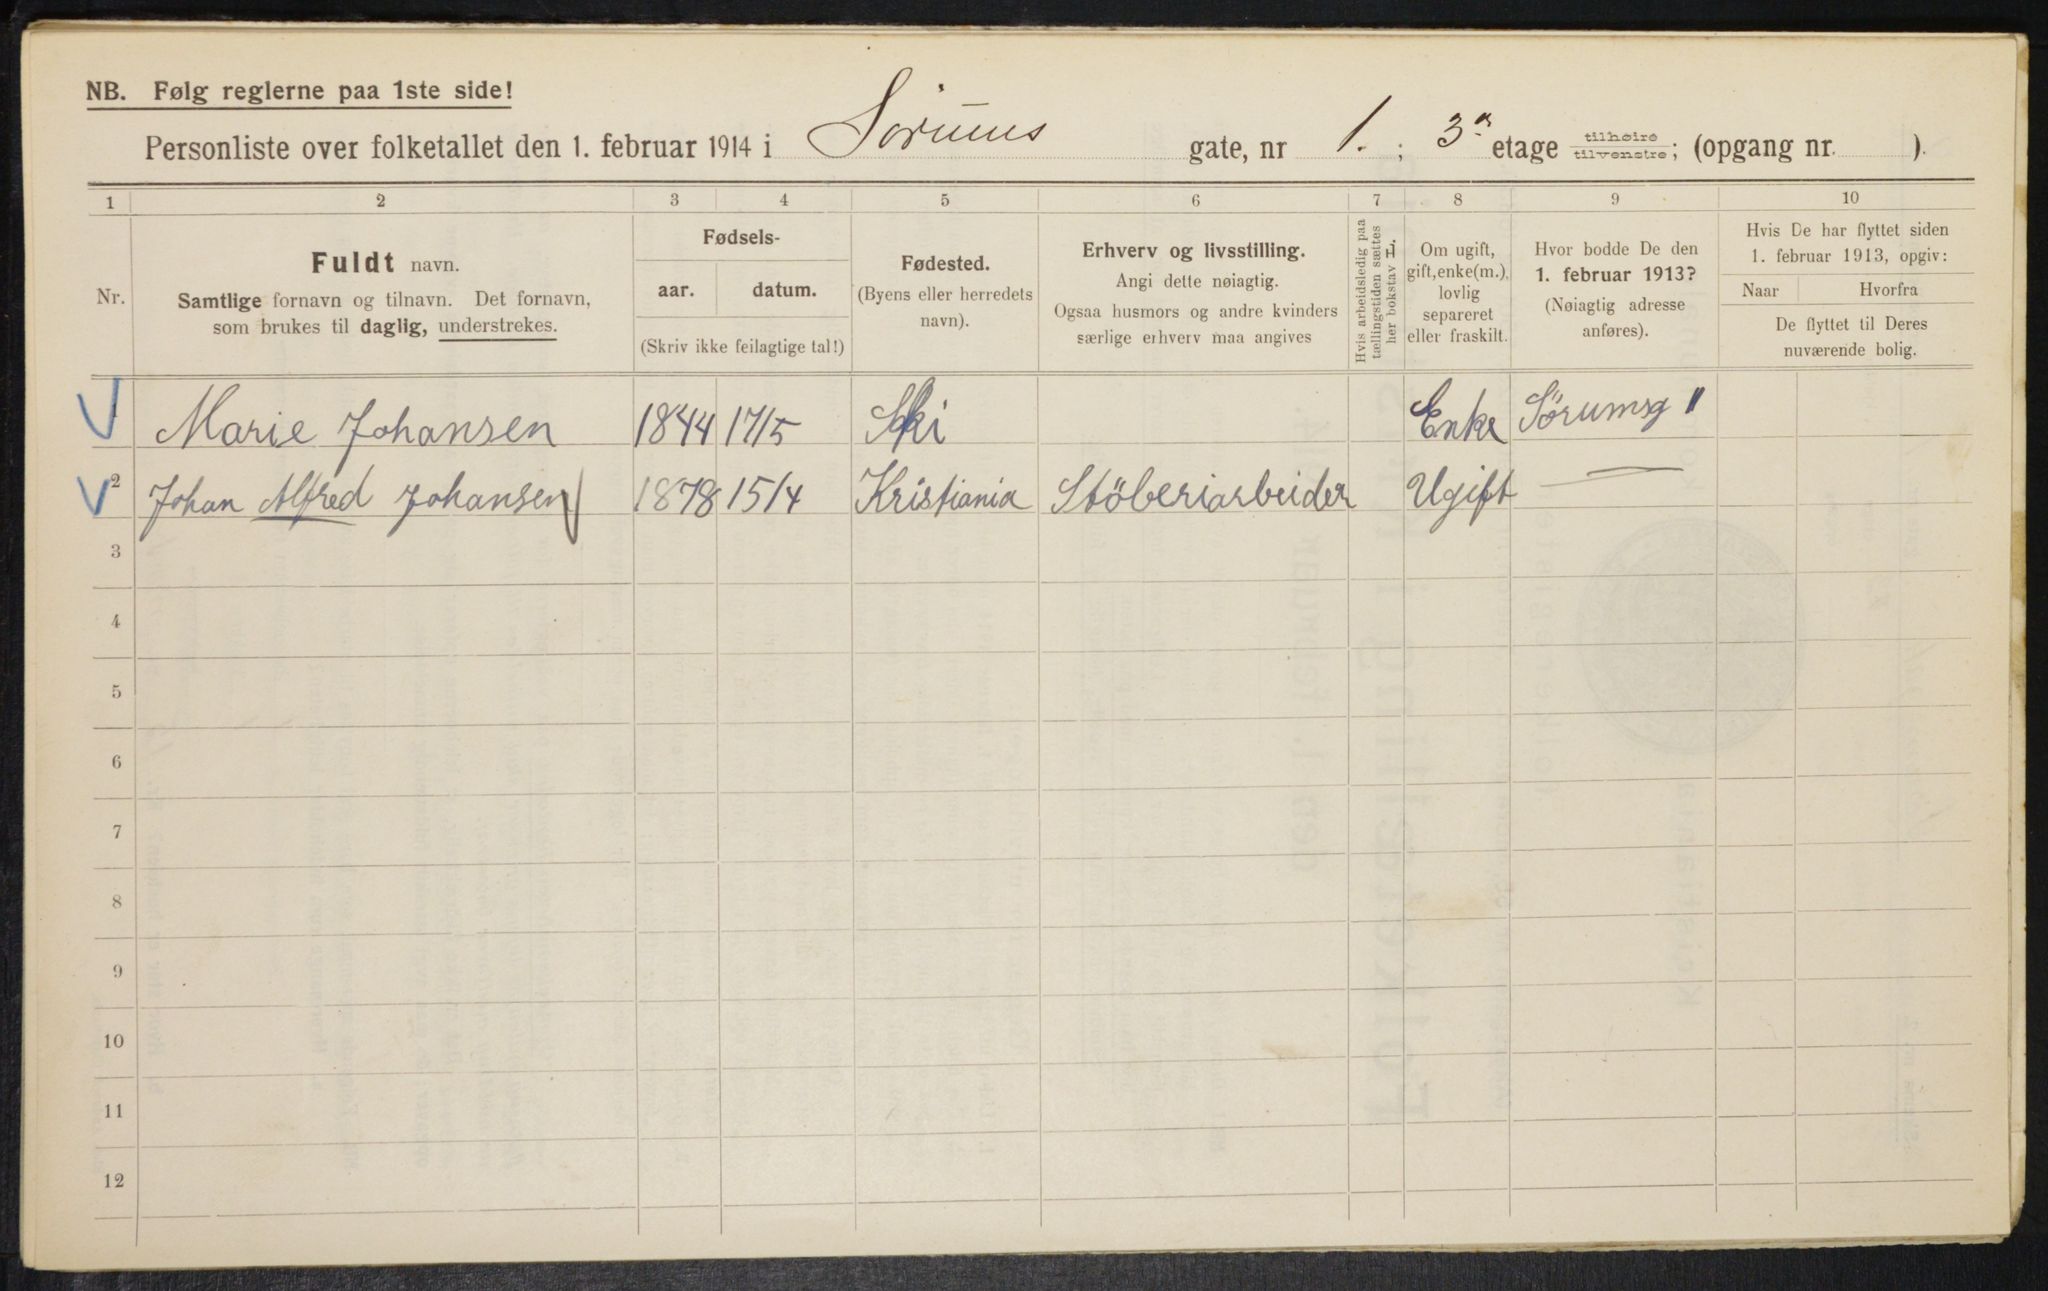 NB. Følg reglerne paa 1ste side!
Personliste over folketallet den 1. februar 1914 i Sörums gate, nr 1. ; 3 etage tilhøire tilvenstre; (opgang nr. ).
1 2 3 4 5 6 7 8 9 10
Nr.
Fuldt navn.
Samtlige fornavn og tilnavn. Det fornavn,
som brukes til daglig, understrekes.
Fødsels-
aar. datum.
(Skriv ikke feilagtige tal!)
Fødested.
(Byens eller herredets
navn).
Erhverv og livsstilling.
Angi dette nøiagtig.
Ogsaa husmors og andre kvinders
særlige erhverv maa angives
Hvis arbeidsledig paa
tællingstiden sættes
her bokstav L.
Om ugift,
gift, enke(m.),
lovlig
separeret
eller fraskilt.
Hvor bodde De den
1. februar 1913?
(Nøiagtig adresse
anføres).
Hvis De har flyttet siden
1. februar 1913, opgiv:
Naar Hvorfra
De flyttet til Deres
nuværende bolig.
1 Marie Johansen 1844 17/5 Ski Enke Sørumsg 11
2 Johan Alfred Johansen 1878 15/4 Kristiania Stöberiarbeider Ugift —
3
4
5
6
7
8
9
10
11
12